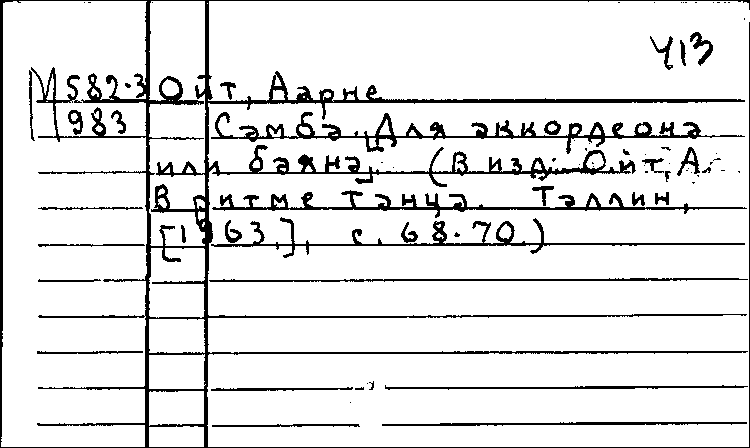 Ч13
М 582-3 Ойт, Аарне
983 Самба. [Для аккордеона
или баяна]. (В изд. Ойт, А.
В ритме танца. Таллин,
[1963.], с. 68-70.)